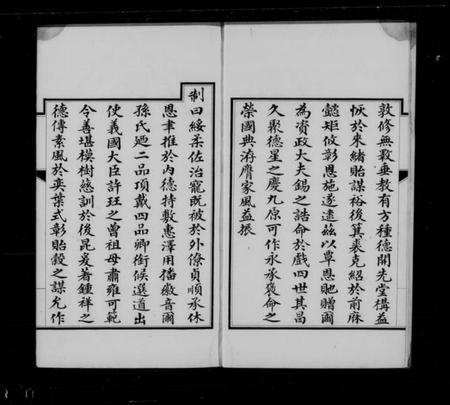 敦修無斁垂教有方種德開先堂構益
恢於來緒貽謀裕後箕裘克紹於前庥
懿矩攸彰恩施遂逮茲以覃恩貤贈爾
為資政大夫錫之誥命於戲四世其昌
久聚德星之慶九原可作永承褒命之
榮國典洊膺家風益振
制曰綏柔佐治寵既被於外僚貞順承休
恩聿推於內德特敷惠澤用播徽音爾
孫氏迺二品頂戴四品卿銜候選道出
使義國大臣許珏之曾祖母肅雍可範
令善堪模樹慈訓於後昆爰著鍾祥之
德傳素風於奕葉式彰貽穀之謀允作